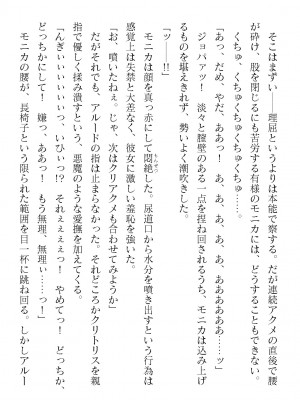 そこはまずい――理屈というよりは本能で察する。だが連続アクメの直後で腰
が砕け、股を閉じるにも苦労する有様のモニカには、どうすることもできない。
くちゅ、くちゅくちゅくちゅくちゅ……。
「あっ、だめ、やだ、ああっ！　あ、あ、あ、あ、あああああっ！」
ジョバァッ！　淡々と膣壁のある一点を捏ね回されるうち、モニカは込み上げ
るものを堪えきれず、勢いよく潮吹きした。
「ッ――!!」
モニカは顔を真っ赤にして悶絶した。尿道口から水分を噴き出すという行為は
感覚上は失禁と大差なく、彼女に激しい羞恥を強いた。
「お、噴いたねぇ。じゃ、次はクリアクメも合わせてみようか」
だがそれでも、アルードの指は止まらなかった。それどころかクリトリスを親
指で優しく揉み潰すという、悪魔のような愛撫を加えてくる。
「んぎぃぃぃぃっっ、いひぃっっ!?　それぇぇぇぇっ！　やめてっ！　どっちか、
どっちかにして！　嫌っ、ああっ！　もう無理、無理ぃ……っ！」
モニカの腰が、長椅子という限られた範囲を目一杯に跳ね回る。しかしアルー